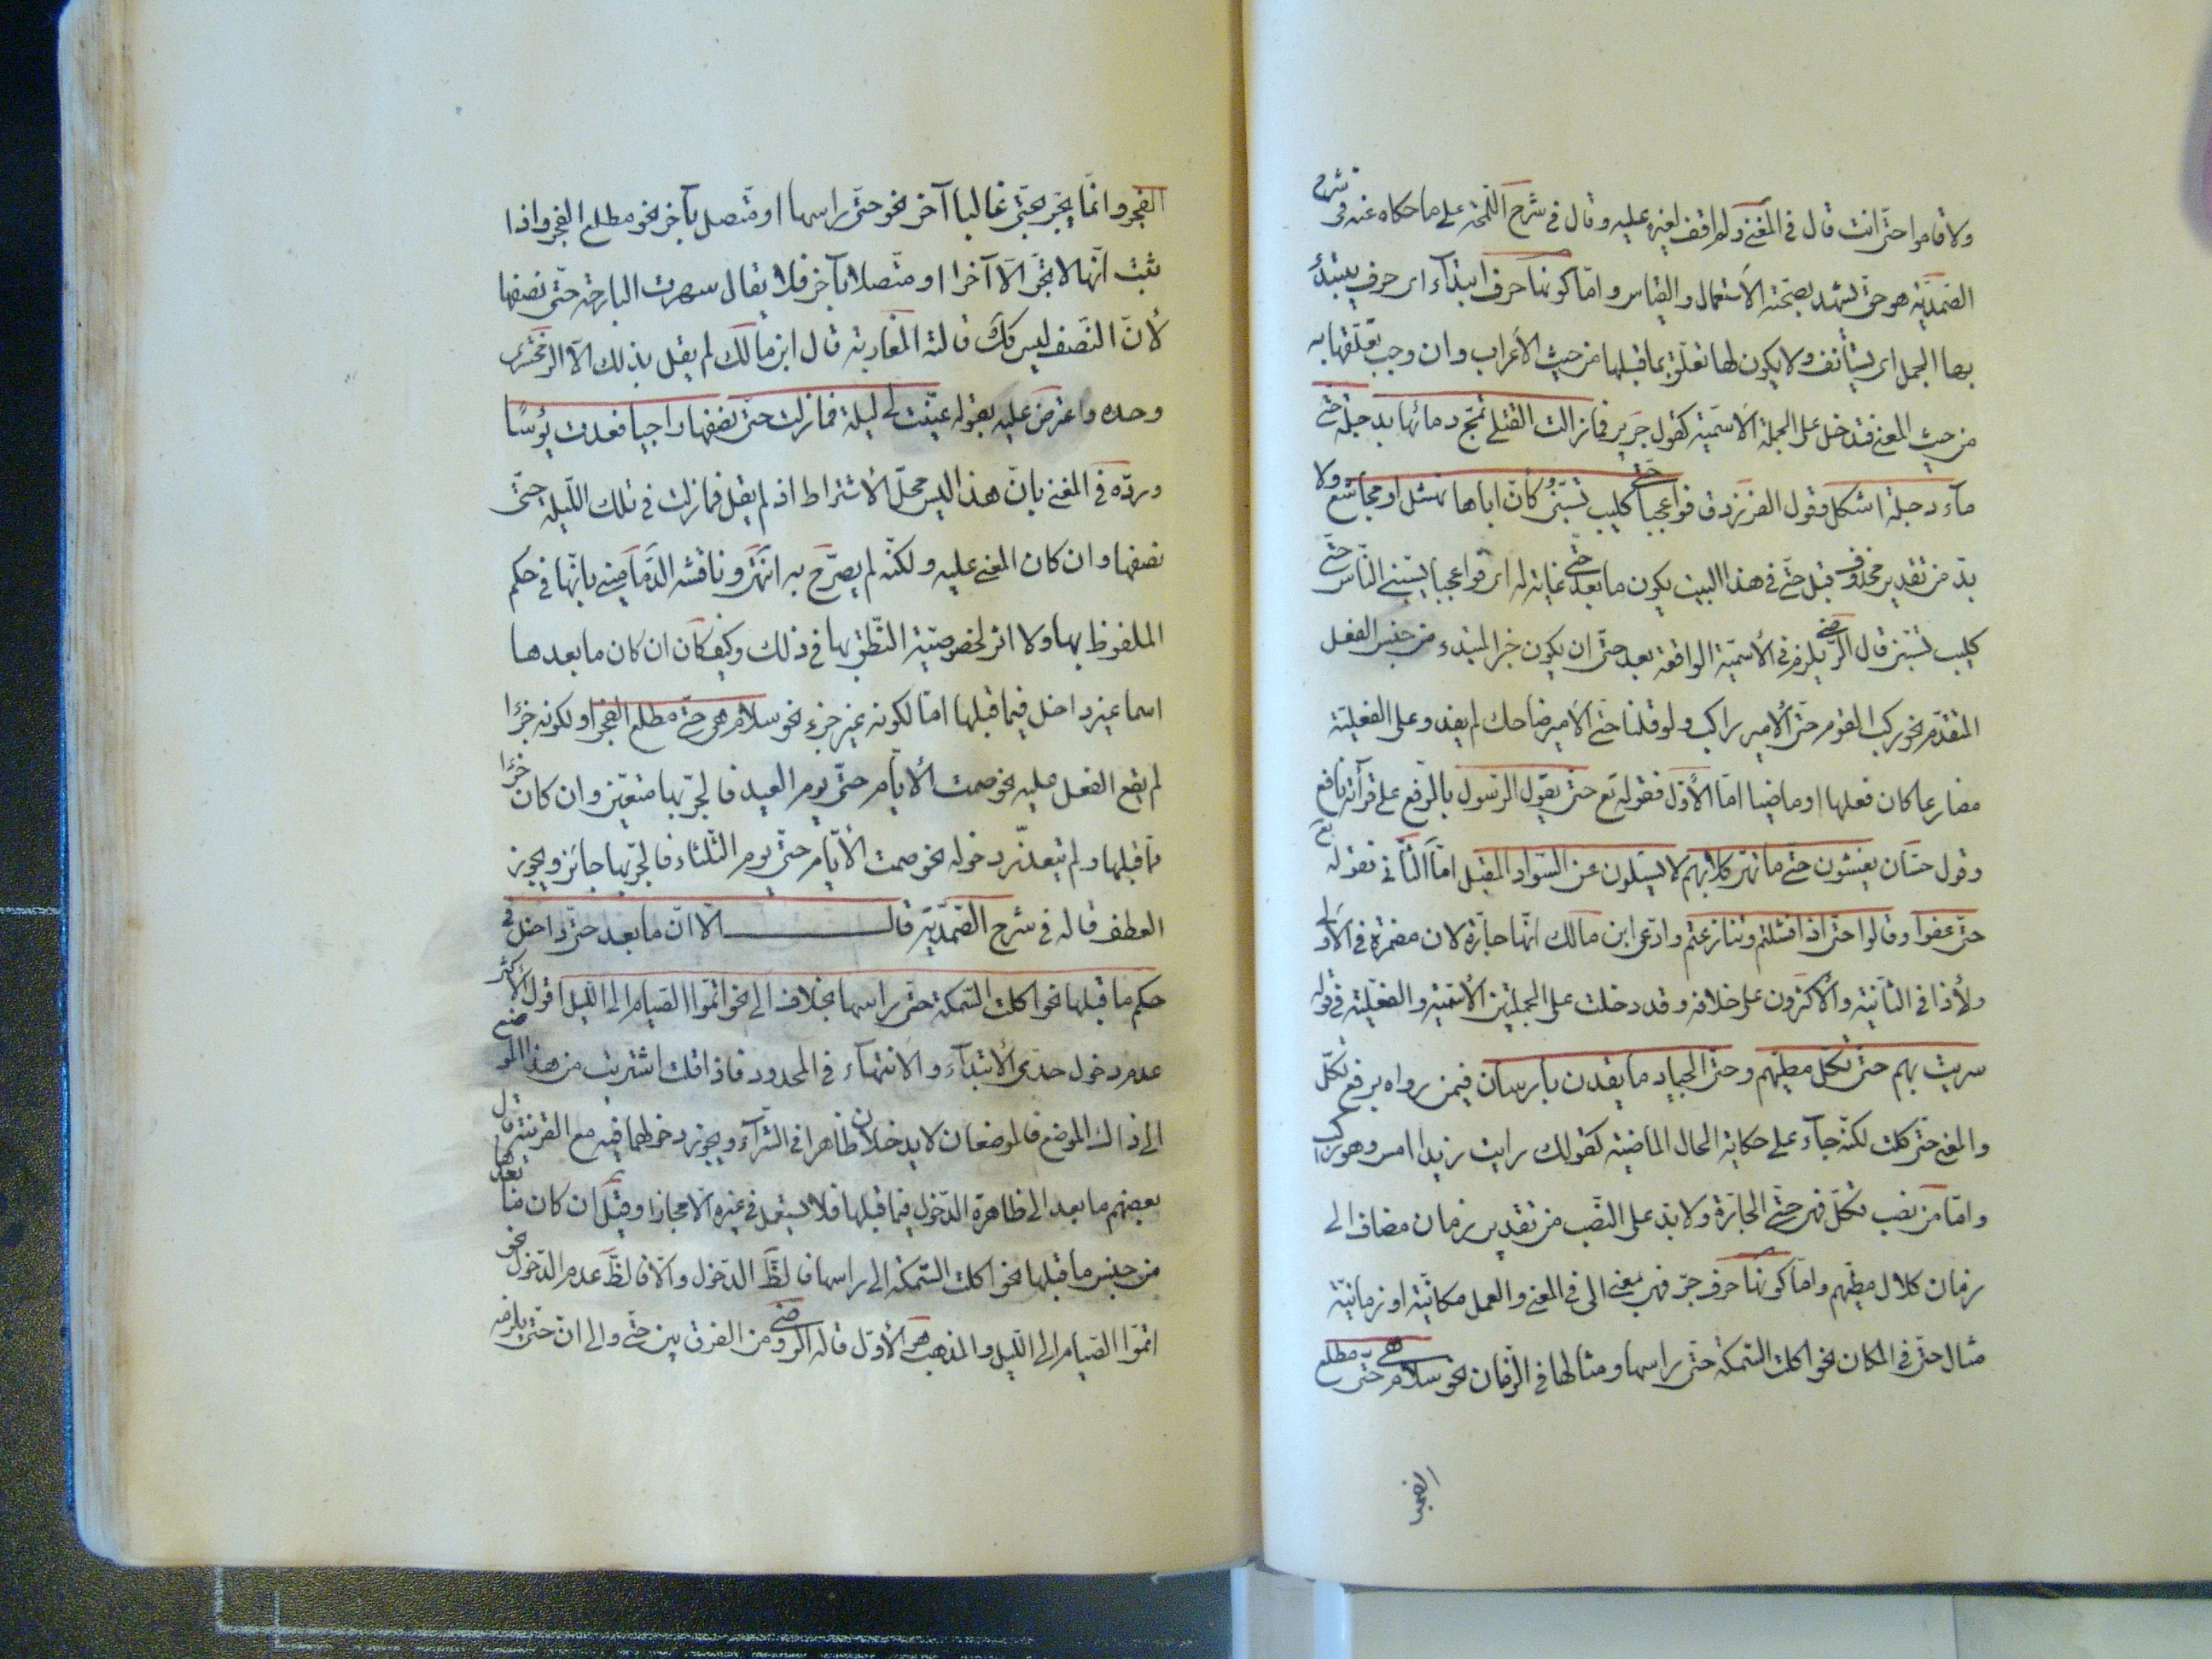 ولا قاموا حتى انت قال فى المغنى ولم اقف لغيره عليه وقال فى شرح اللمحة على ما حكاه عنه فى شرح
الصمدية هو حتى يشهد بصحته الاستعمال والقياس واما كونها حرف ابتدآء اى حرف يبتدئ
بها الجمل اى يستأنف ولا يكون لها تعلق بما قبلها من حيث الاعراب وان وجب تعلقها به
من حيث المعنى فتدخل على الجملة الاسمية كقول جرير فما زالت القتلى تمج دمائها بدجلة حتى
مآء دجلة اشكل وقول الفرزدق فواعجبا حتى كليب تسبنى كأن اباها نهشل او مجاشع ولا
بد من تقدير محذوف قبل حتى فى هذا البيت يكون ما بعد حتى غاية له اى فواعجبا يسبنى الناس حتى
كليب تسبنى قال الرضى يلزم فى الاسمية الواقعة بعد حتى ان يكون خبر المبتدء من جنس الفعل
المتقدم نحو ركب القوم حتى الامير راكب ولو قلنا حتى الامير ضاحك لم يفد وعلى الفعلية
مضارعا كان فعلها او ماضيا اما الاول فقوله تع حتى يقول الرسول بالرفع على قرآئة نافع
وقول حسان يغشون حتى ما تهر كلابهم لا يسئلون عن السواد المقبل اما الثانى فقوله تع
حتى عفوا وقالوا حتى اذا فشلتم وتنازعتم وادعى ابن مالك انها جارة لان مضمرة فى الاولى
ولأذا فى الثانية والأكثرون على خلافه وقد دخلت على الجملتين الاسمية والفعلية فى قوله
سريت بهم حتى تكل مطيهم وحتى الجياد ما يقدن بارسان فيمن رواه برفع تكل
والمعنى حتى كلت لكنه جآء على حكاية الحال الماضية كقولك رايت زيدا امس وهو راكب
واما من نصب تكل فهى حتى الجارة ولا بد على النصب من تقدير زمان مضاف الى
زمان كلال مطيهم واما كونها حرف جر فهى بمعنى الى فى المعنى والعمل مكانية او زمانية
مثال حتى فى المكان نحو اكلت السمكة حتى راسها ومثالها فى الزمان نحو سلام هى حتى مطلع
الفجر
الفجر وانما يجر بحتى غالبا آخر نحو حتى راسها او متصل بآخر نحو مطلع الفجر واذا
ثبت انها لا تجر الا آخرا او متصلا بآخر فلا يقال سهرت البارحة حتى نصفها
لأن النصف ليس كك قالته المغاربة قال ابن مالك لم يقل بذلك الا الزمخشرى
وحده واعترض عليه بقوله عينت ليلة فما زلت حتى نصفها راجيا فعدت يؤسًا
ورده فى المغنى بان هذا ليس محل الأشتراط اذ لم يقل فما زلت فى تلك الليلة حتى
نصفها وان كان المعنى عليه ولكنه لم يصرح به انتهى وناقشه الدمامينى بانها فى حكم
الملفوظ بها ولا اثر لخصوصية النطق بها فى ذلك وكيف كان ان كان ما بعدها
اسما غير داخل فيما قبلها اما لكونه غير جزء نحو سلام هى حتى مطلع الفجر او لكونه جزءا
لم يقع الفعل عليه نحو صمت الأيام حتى يوم العيد فالجر بها متعين وان كان جزءا
مما قبلها ولم يتعذر دخوله نحو صمت الأيام حتى يوم الثلثاء فالجر بها جائز ويجوز
العطف قاله فى شرح الصمدية قال الا ان ما بعد حتى داخل فى
حكم ما قبلها نحو اكلت السمكة حتى راسها بخلاف الى نحو اتموا الصيام الى الليل اقول الأكثر
عدم دخول حدى الأبتدآء والانتهآء فى المحدود فاذا قلت اشتريت من هذا الموضع
الى ذاك الموضع فالموضعان لا يدخلان ظاهرا فى الشرآء ويجوز دخولهما فيه مع القرينة قال
بعضهم ما بعد الى ظاهرة الدخول فيما قبلها فلا يستعمل فى غيره الا مجازا وقيل ان كان ما بعدها
من جنس ما قبلها نحو اكلت السمكة الى راسها فالظ الدخول والا فالظ عدم الدخول نحو
اتموا الصيام الى الليل والمذهب هو الأول قاله الرضى ومن الفرق بين حتى والى ان حتى يلزمه